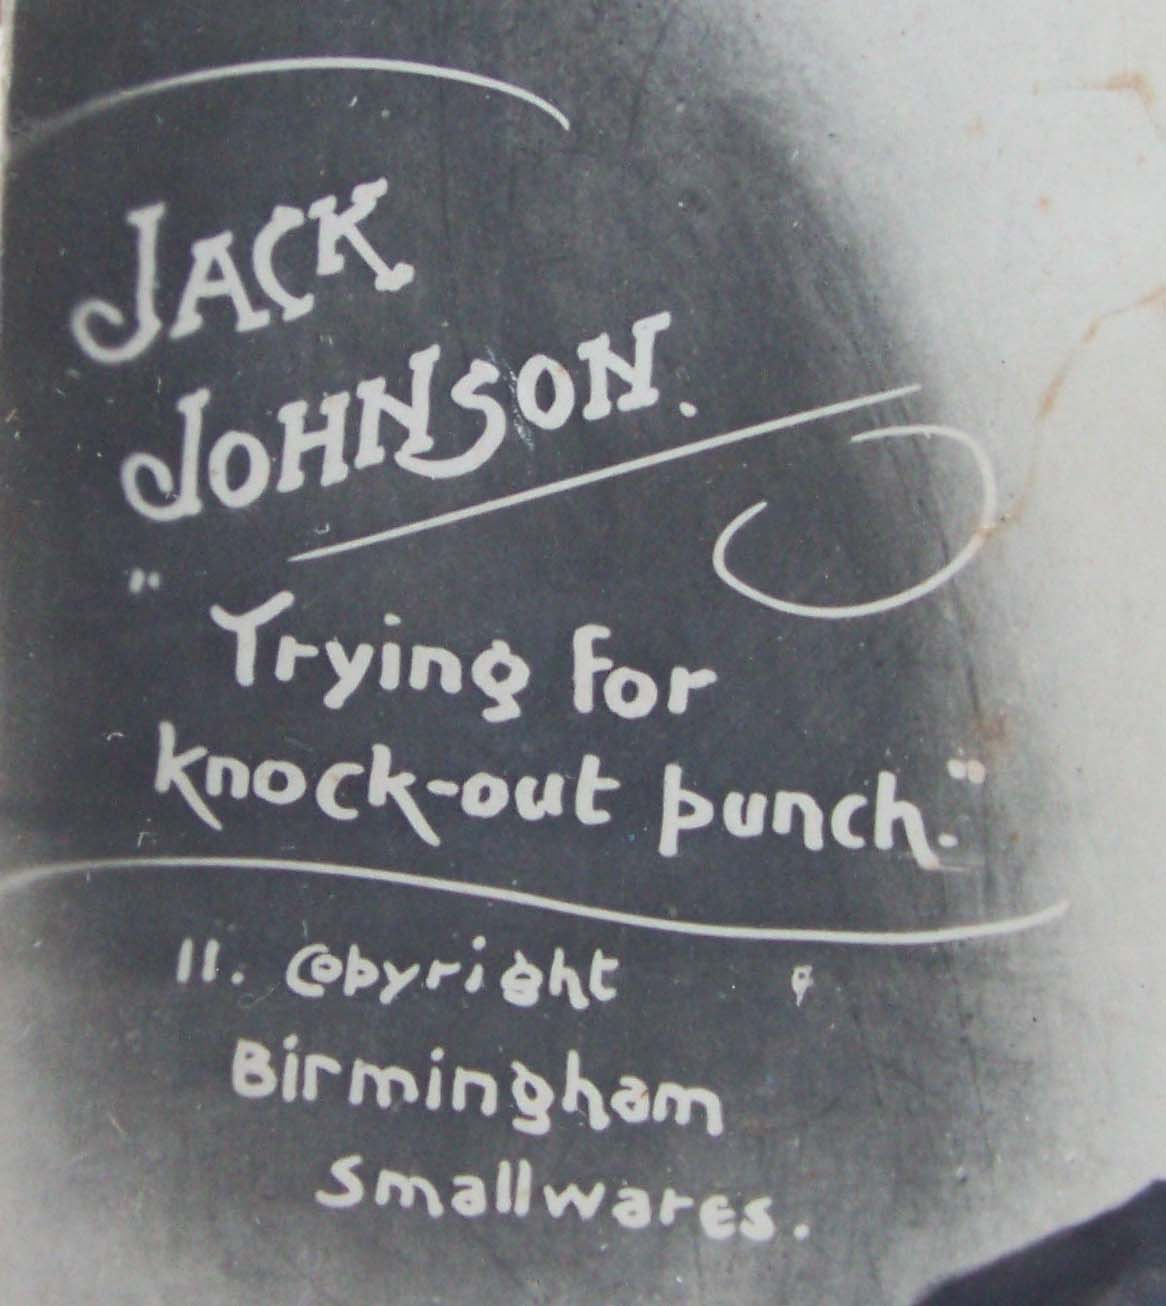 JACK
JOHNSON.
"Trying for
knock-out punch."
11. Copyright
Birmingham
Smallwares.